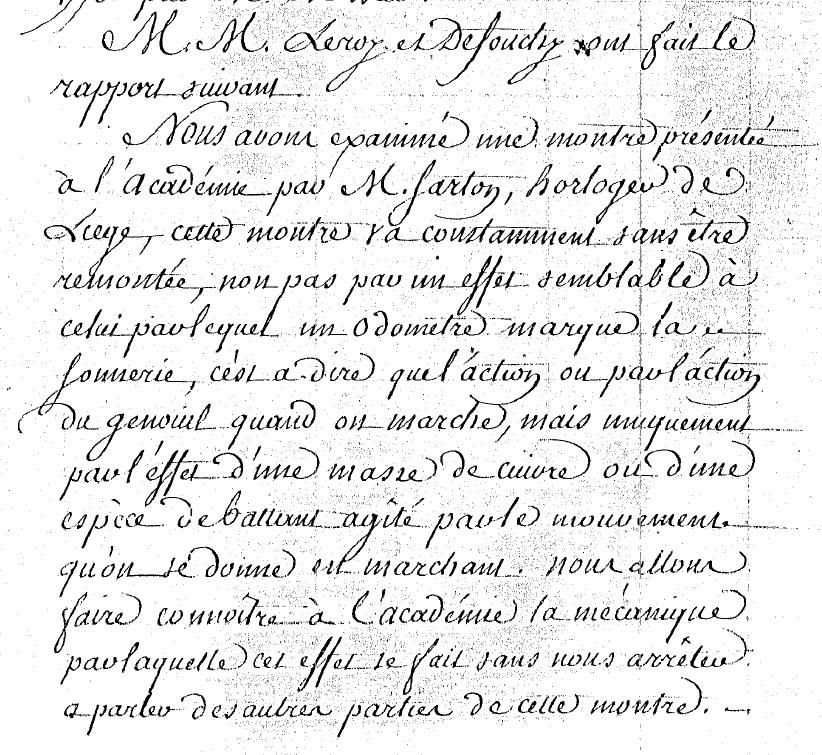 M.M. Leroy et Defouchy ont fait le
rapport suivant.
Nous avons examiné une montre présentée
à l'académie par M. Sarton, horloger de
Liege, cette montre va constamment sans être
remontée, non pas par un effet semblable à
celui par lequel un odometre marque la
sonnerie, c'est a dire que l'action ou par l'action
du genouil quand on marche, mais uniquement
par l'effet d'une masse de cuivre ou d'une
espèce de battant agité par le mouvement
qu'on se donne en marchant. nous allons
faire connoître à l'académie la mécanique
par laquelle cet effet se fait sans nous arrêter
a parler des autres parties de cette montre. —